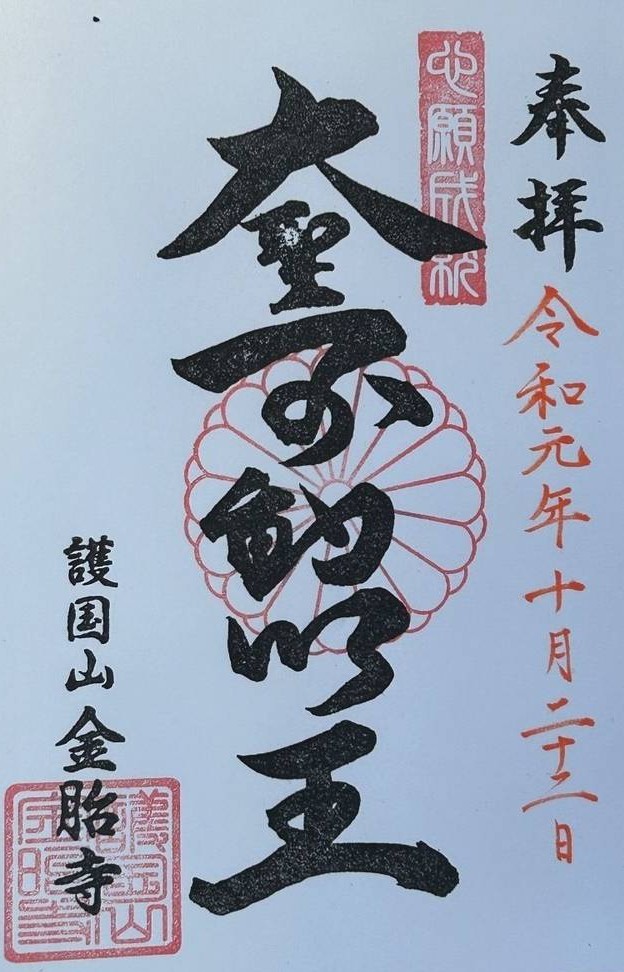 奉拝
令和元年十月二十二日
心願成就
大聖不動明王
護国山金胎寺
護国山金胎寺